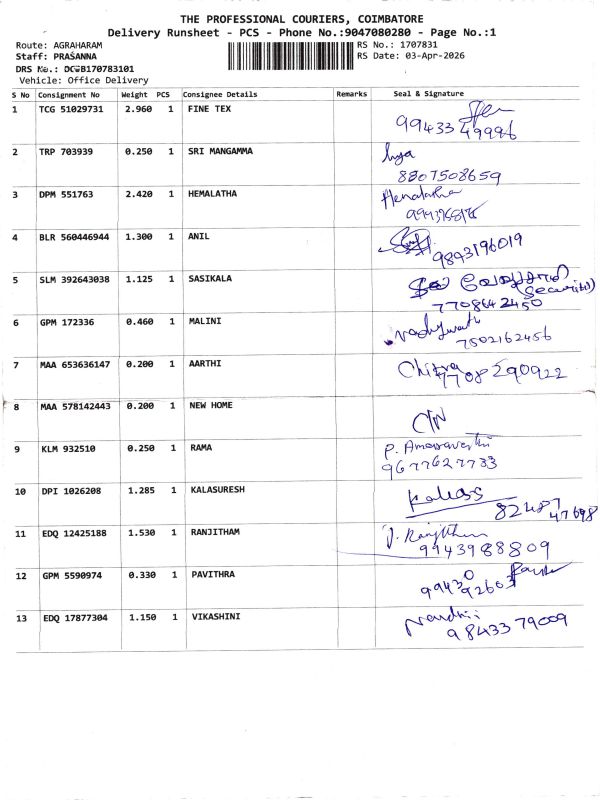 THE PROFESSIONAL COURIERS, COIMBATORE
Delivery Runsheet - PCS - Phone No.:9047080280 - Page No.:1
Route: AGRAHARAM RS No.: 1707831
Staff: PRASANNA RS Date: 03-Apr-2026
DRS No.: DCWB170783101
Vehicle: Office Delivery
S No Consignment No Weight PCS Consignee Details Remarks Seal & Signature
1 TCG 51029731 2.960 1 FINE TEX
99433 49996
2 TRP 703939 0.250 1 SRI MANGAMMA
8807508659
3 DPM 551763 2.420 1 HEMALATHA Hemalatha
4 BLR 560446944 1.300 1 ANIL
9843196019
5 SLM 392643038 1.125 1 SASIKALA
(Security)
7708642450
6 GPM 172336 0.460 1 MALINI
7502162456
7 MAA 653636147 0.200 1 AARTHI Chitra
7708290922
8 MAA 578142443 0.200 1 NEW HOME
9 KLM 932510 0.250 1 RAMA P. Amaravathi
9677627733
10 DPI 1026208 1.285 1 KALASURESH
82487
47698
11 EDQ 12425188 1.530 1 RANJITHAM
9943988809
12 GPM 5590974 0.330 1 PAVITHRA
99430
92603
13 EDQ 17877304 1.150 1 VIKASHINI
9843379009